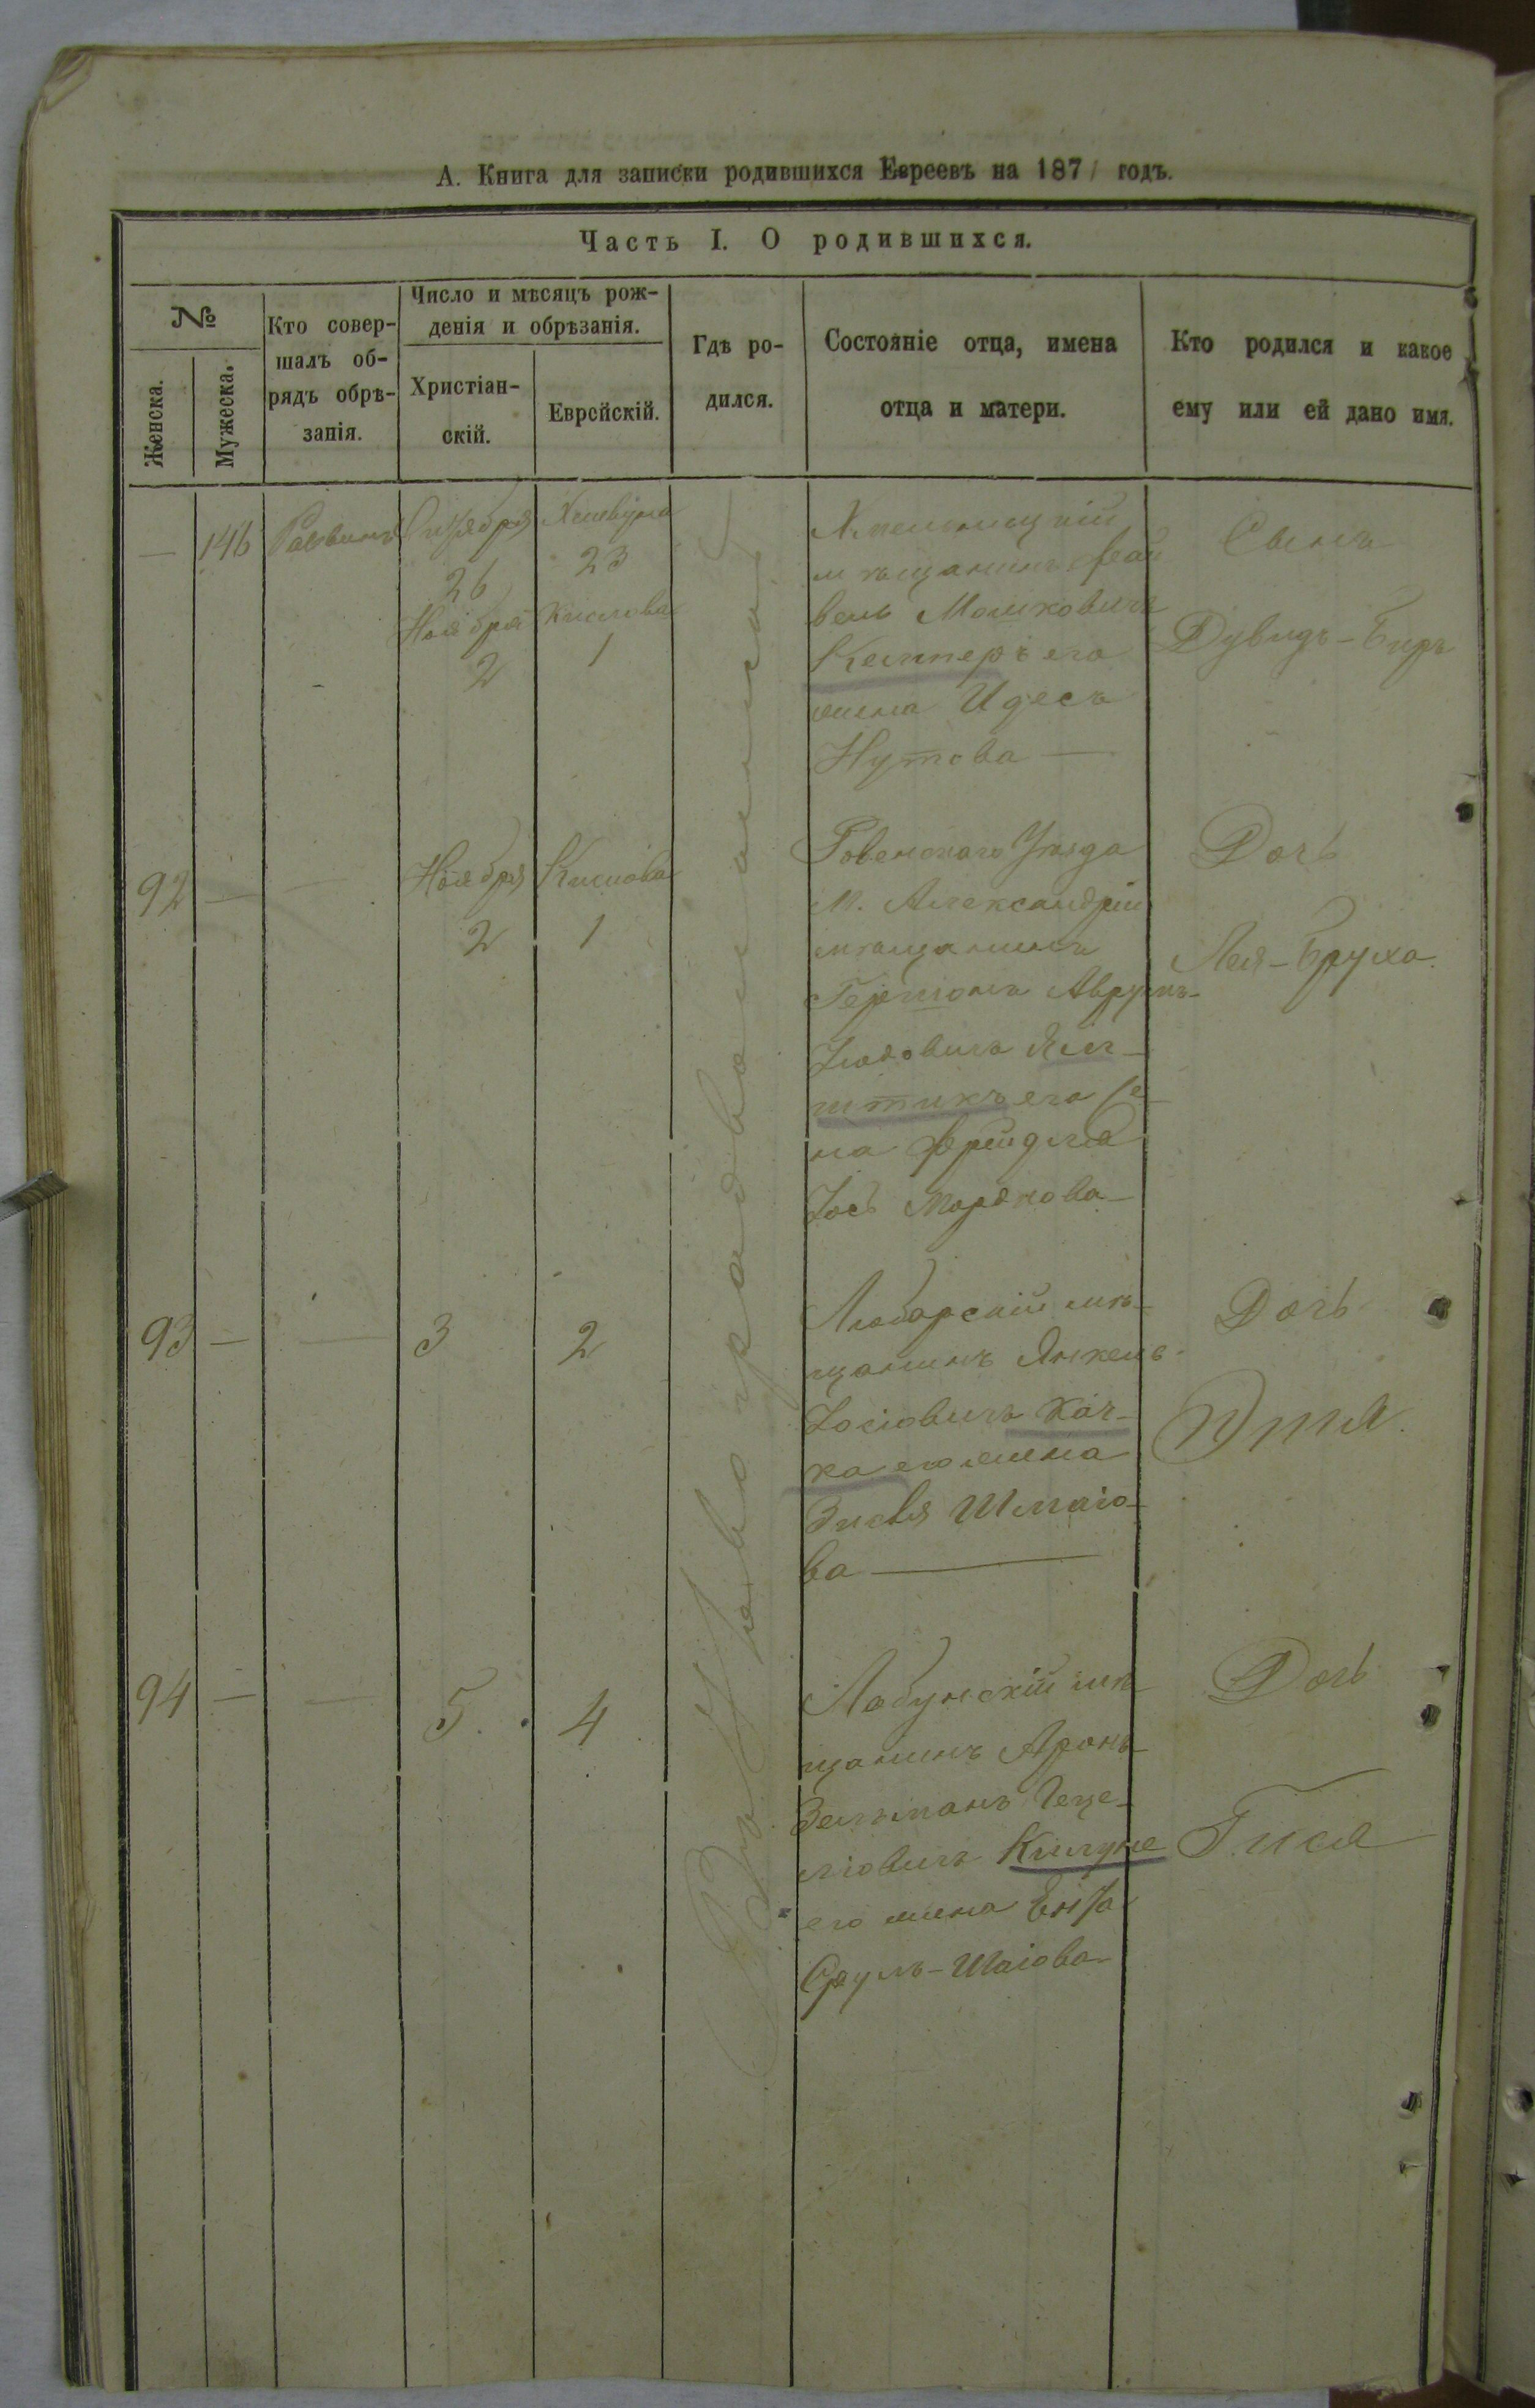 А. Книга для записки родившихся Евреевъ на 1871 годъ.
Часть I. О родившихся.
№
Женска.
Мужеска.
Кто совер-
шалъ об-
рядъ обрѣ-
занія.
Число и мѣсяцъ рож-
денія и обрѣзанія.
Христіан-
скій.
Еврейскій.
Гдѣ ро-
дился.
Состояніе отца, имена
отца и матери.
Кто родился и какое
ему или ей дано имя.
— 146 Раввинъ Октября
26
Ноября
2
Хешвуна
23
Кислова
1
Хмельницкій
мѣщанинъ Фай
вель Мошковичъ
его
жена Идесъ
Нутова —
Сынъ
Дувидъ-Беръ
92 — — Ноября
2
Кислова
1
Ровенскаго Уѣзда
М. Александрій
мѣщанинъ
Гершонъ Аврумъ-
его же-
на Фрейдля
Мордкова —
Дочь
Лея-Бруха.
93 — — 3 2
Любарскій мѣ-
щанинъ Янкель
Іосіовичъ Кач-
ка его жена
Шмаіо-
ва —
Дочь
94 — — 5. 4
Лабунскій мѣ
щанинъ Аронъ-
Зельманъ Геце-
ліовичъ
его жена Ента
Сруль-Шаіова
Дочь
Гися